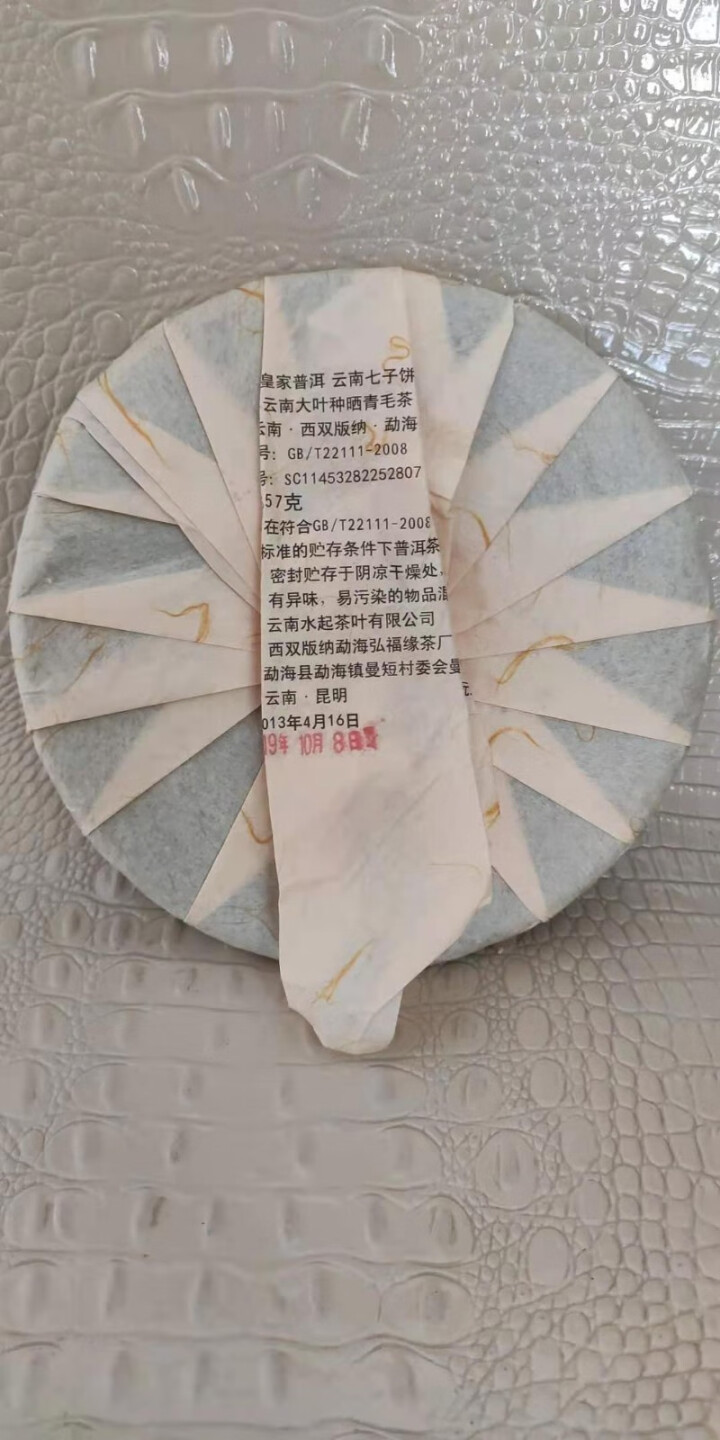 皇家普洱 云南七子饼
云南大叶种晒青毛茶
云南·西双版纳·勐海
号: GB/T22111-2008
号: SC11453282252807
57克
在符合GB/T22111-2008
标准的贮存条件下普洱茶
密封贮存于阴凉干燥处,
有异味，易污染的物品混
云南水起茶叶有限公司
西双版纳勐海弘福缘茶厂
勐海县勐海镇曼短村委会曼
云南·昆明
013年4月16日
19年 10月 8日